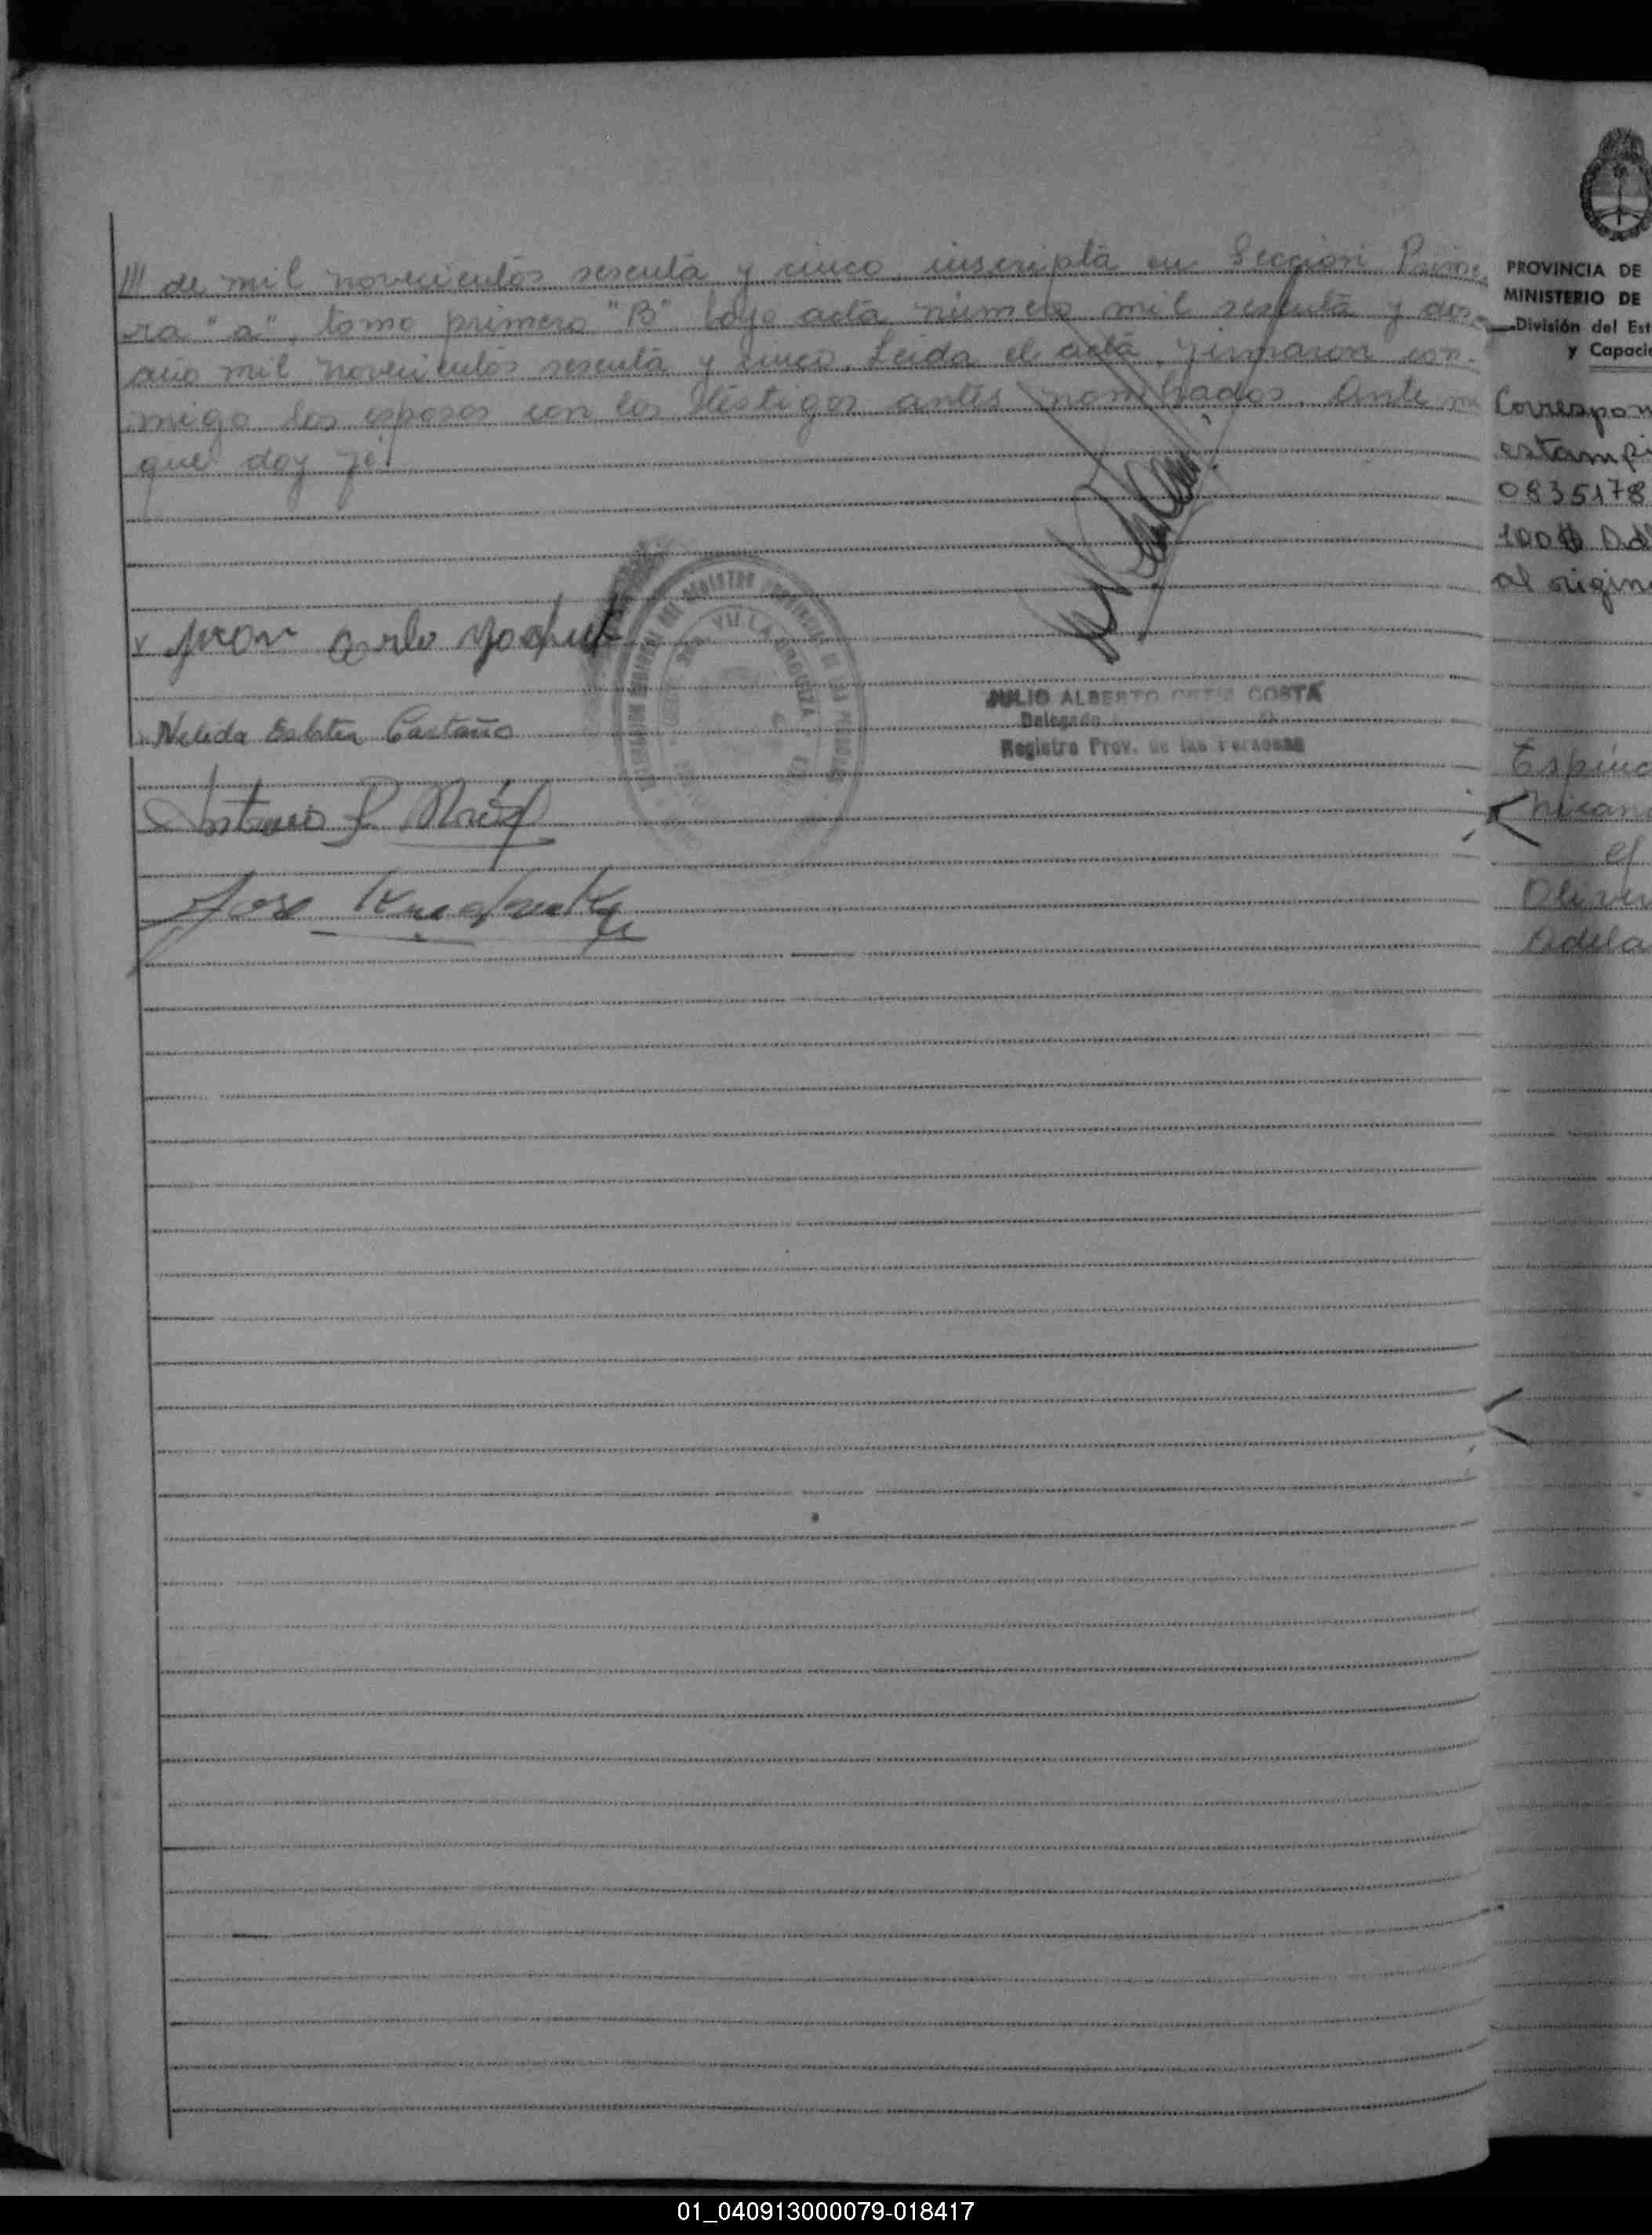 /// de mil novecientos sesenta y cinco, inscripta en Sección Prime-
ra "a", tomo primero "B" bajo acta número mil sesenta y dos
año mil novecientos sesenta y cinco. Leida el acta, firmaron con-
migo los esposos con los testigos antes nombrados. Ante mi
que doy fe.
Nelida Eshter Castaño
Antonio
Jose
JULIO ALBERTO ORTIZ COSTA
Delegado
Registro Prov. de las Personas
PROVINCIA DE
MINISTERIO DE
División del Est
y Capaci
Correspon
estampi
0835178
100$ Ad
al origin
Espino
Nican
el
Olive
Adela
01_040913000079-018417